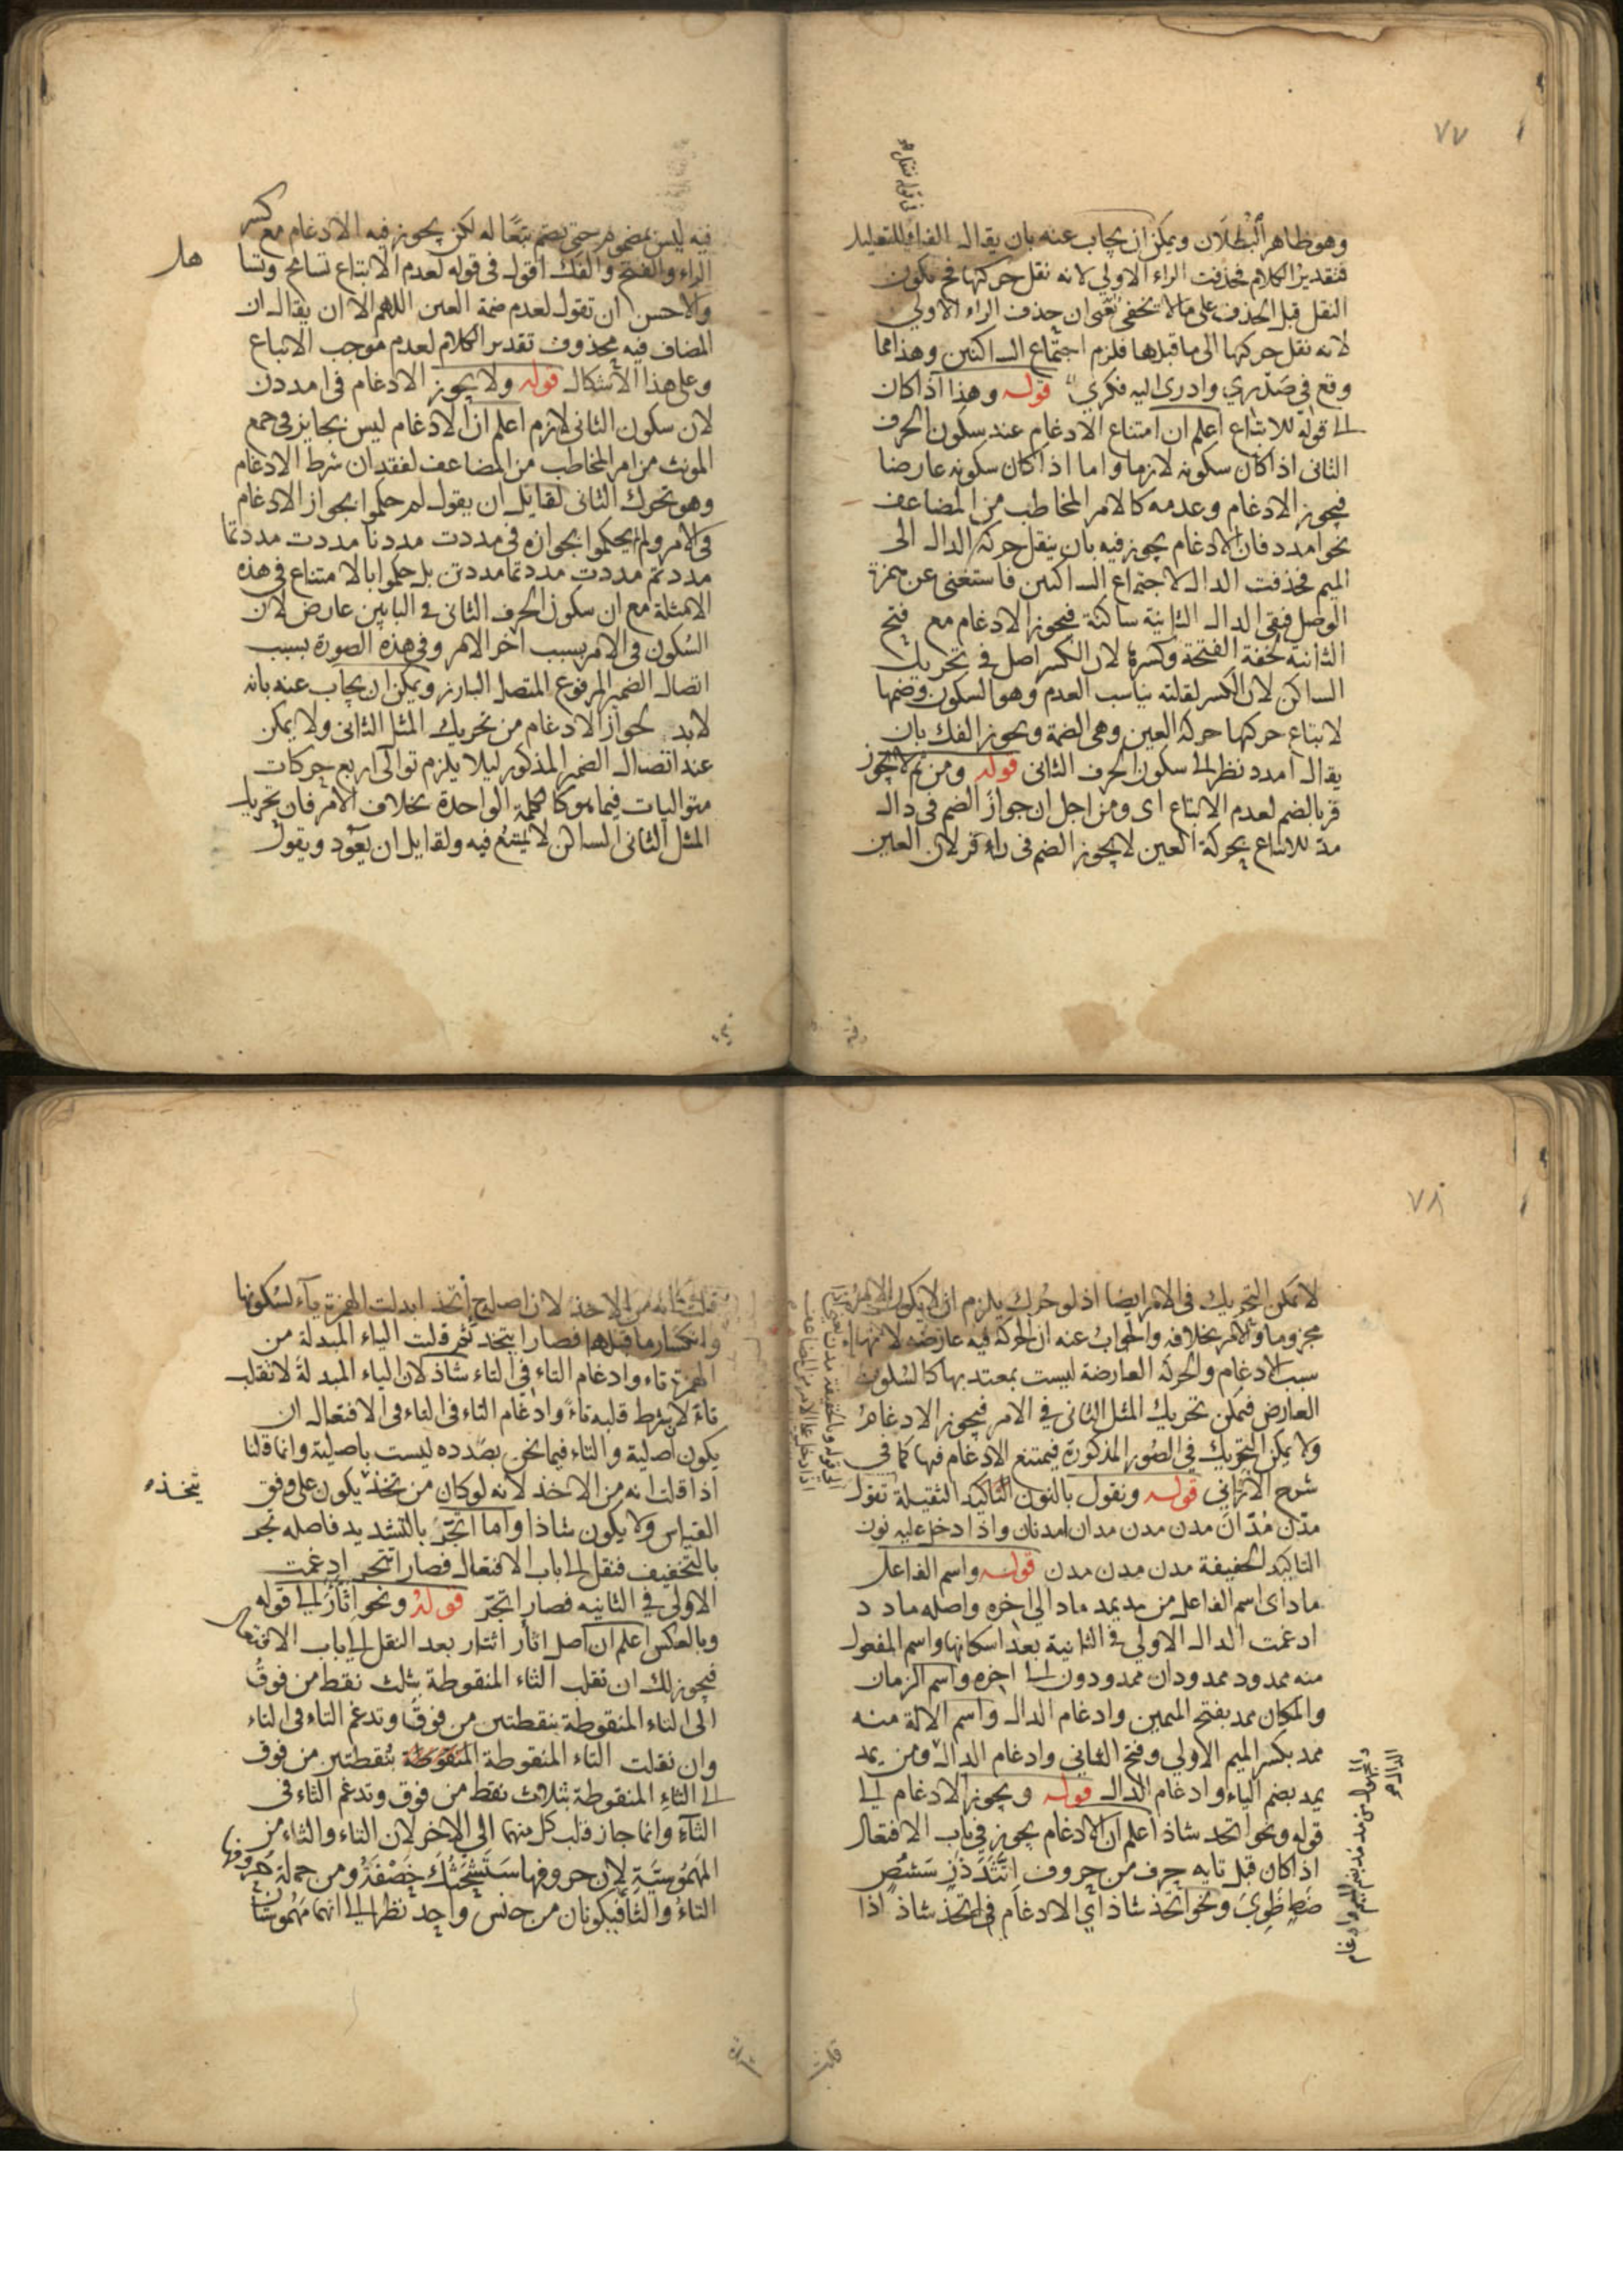 ٧٧
وهو ظاهر البُطلان ويمكن ان يجاب عنه بان يقال الفاء للتعليل
فتقدير الكلام فحذفت الراء الاولي لانه نقل حركتها فح يكون
النقل قبل الحذف على ما لا يخفى يعنى ان حذف الراء الاولي
لانه نقل حركتها الى ما قبلها فلزم اجتماع الساكنين وهذا مما
وقع في صَدْري وادرى اليه فكري قوله وهذا اذا كان
الى قوله للاتباع اعلم ان امتناع الادغام عند سكون الحرف
الثانى اذا كان سكونه لازما واما اذا كان سكونه عارضا
فيجوز الادغام وعدمه كالامر المخاطب من المضاعف
نحو امدد فان الادغام يجوز فيه بان ينقل حركة الدال الى
الميم فحذفت الدال لاجتماع الساكنين فاستغنى عن همزة
الوصل فبقى الدال الثانية ساكنة فيجوز الادغام مع فتح
الثانية لخفة الفتحة وكسرها لان الكسر اصل في تحريك
الساكن لان الكسر لقلته يناسب العدم وهو السكون وضمها
لاتباع حركتها حركة العين وهى الضمة ويجوز الفك بان
يقال امدد نظرا الى سكون الحرف الثانى قوله ومن ثم لا يجوز
فر بالضم لعدم الاتباع اى ومن اجل ان جواز الضم فى دال
مدّ للاتباع بحركة العين لا يجوز الضم فى راء فر لان العين
فيه ليس بمضموم حتى يضم تبعًا له لكن يجوز فيه الادغام مع كسر
الراء والفتح والفك اقول فى قوله لعدم الاتباع تسامح وتسا
هل
والاحسن ان تقول لعدم ضمة العين اللهم الا ان يقال ان
المضاف فيه محذوف تقدير الكلام لعدم موجب الاتباع
وعلى هذا الاشكال قوله ولا يجوز الادغام فى امددن
لان سكون الثانى لازم اعلم ان الادغام ليس بجايز فى جمع
المونث من امر المخاطب من المضاعف لفقدان شرط الادغام
وهو تحرك الثانى لقايل ان يقول لم حكموا بجواز الادغام
فى الامر ولم يحكموا بجوازه فى مددت مددنا مددت مددتما
مددتم مددت مددتما مددتن بل حكموا بالامتناع فى هذه
الامثلة مع ان سكون الحرف الثانى فى البابين عارض لان
السكون فى الامر بسبب اخر الامر وفى هذه الصورة بسبب
اتصال الضمير المرفوع المتصل البارز ويمكن ان يجاب عنه بانه
لابد لجواز الادغام من تحريك المثل الثانى ولا يمكن
عند اتصال الضمير المذكور ليلا يلزم توالى اربع حركات
متواليات فيما هو كالكلمة الواحدة بخلاف الامر فان تحريك
المثل الثانى الساكن لا يمتنع فيه ولقايل ان يعود ويقول
٧٨
لا يمكن التحريك فى الامر ايضا اذ لو حُرك يلزم ان لا يكون الامر
مجزوما والامر بخلافه والجواب عنه ان الحركة فيه عارضه لانها
سبب الادغام والحركة العارضة ليست بمعتد بها كالسكون
العارض فيمكن تحريك المثل الثانى في الامر فيجوز الادغام
ولا يمكن التحريك فى الصُور المذكورة فيمتنع الادغام فيها كما في
شرح قوله وتقول بالنون التاكيد الثقيلة تقول
مدّن مُدّان مدن مدن مدان امدنان واذا دخل عليه نون
التاكيد الخفيفة مدن مدن مدن قوله واسم الفاعل
ماد اى اسم الفاعل من مد يمد ماد الى اخره واصله ماد د
ادغمت الدال الاولي في الثانية بعد اسكانها واسم المفعول
منه ممدود ممدودان ممدودون الى اخره واسم الزمان
والمكان ممد بفتح الميمين وادغام الدال واسم الالة منه
ممد بكسر الميم الاولي وفتح الثاني وادغام الدال ومن يمد
يمد بضم الياء وادغام الدال قوله ويجوز الادغام الى
قوله ونحو اتحد شاذ اعلم ان الادغام يجوز فى باب الافتعال
اذا كان قبل تايه حرف من حروف اتثدذز سشص
ضطظوي ونحو اتخذ شاذ أي الادغام فى اتخذ شاذ اذا
قلت من الاخذ لان اصل اتخذ ابدلت الهمزة ياء لسكونها
وانكسار ما قبلها فصار ايتخذ ثم قلبت الياء المبدلة من
الهمزة تاء وادغام التاء في التاء شاذ لان الياء المبدلة لا تقلب
تاءً لان شرط قلبه تاءً وادغام التاء فى التاء فى الافتعال ان
يكون اصلية والتاء فيما نحن بصدده ليست باصلية وانما قلنا
اذا قلت انه من الاخذ لانه لو كان من تخذ يكون على وفق
يتخذ
القياس ولا يكون شاذا واما اتجرّ بالتشديد فاصله تجر
بالتخفيف فنقل الى باب الافتعال فصار اتتجر ادغمت
الاولى في الثانيه فصار اتجرّ قوله ونحو اثّأر الى قوله
وبالعكس اعلم ان اصل اثأر اثتار بعد النقل الى باب الافتعال
فيجوز لك ان تقلب الثاء المنقوطة بثلث نقط من فوق
الى التاء المنقوطة بنقطتين من فوق وتدغم التاء فى التاء
وان نقلت التاء المنقوطة المنقوطة بنقطتين من فوق
الى الثاء المنقوطة بثلاث نقط من فوق وتدغم الثاء فى
الثاء وانما جاز قلب كل منهما الى الاخر لان التاء والثاء من
المهموسَّيَةِ لان حروفها سَتَشْحَثُكَ خَصَفَةُ ومن جملة حروفها
التاءُ والثاء فيكونان من جنس واحد نظرا الى انهما مهموستان